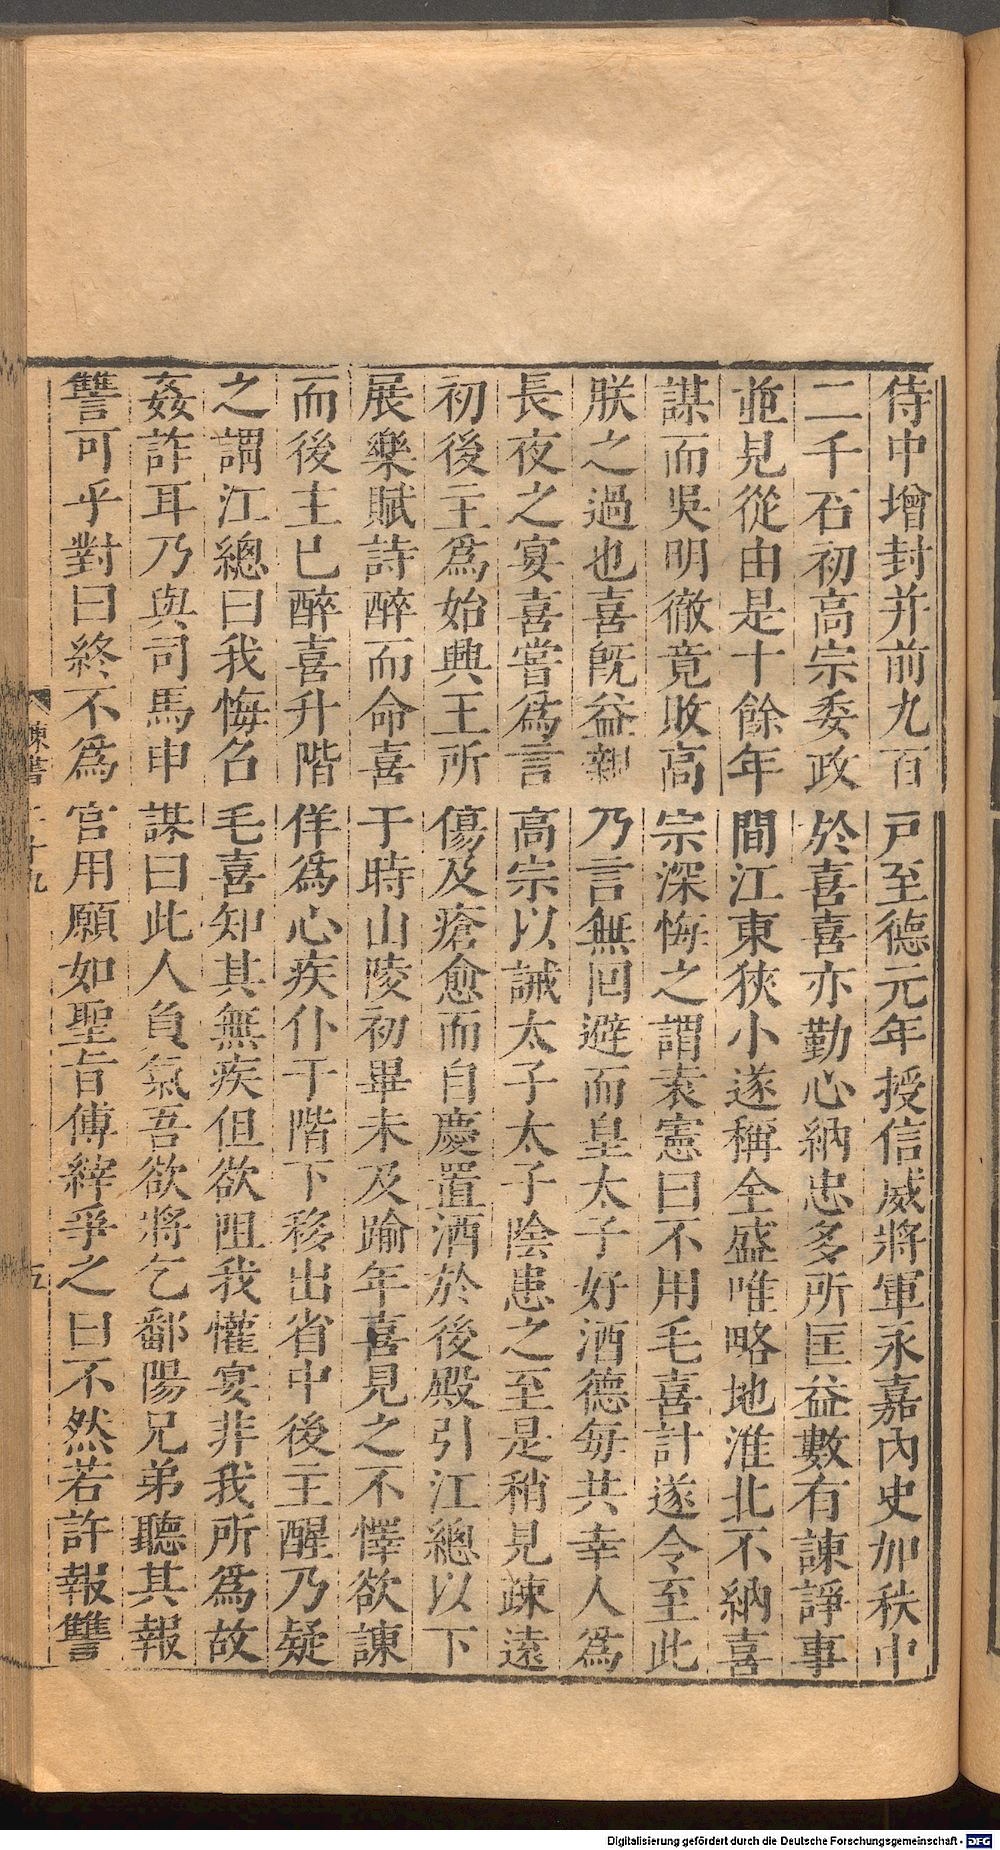 侍中增封并前九百戸至德元年授信威將軍永嘉內史加秩中
二千石初高宗委政於喜喜亦勤心納忠多所匡益數有諫諍事
並見從由是十餘年間江東狹小遂稱全盛唯略地淮北不納喜
謀而吳明徹竟敗高宗深悔之謂袁憲曰不用毛喜計遂令至此
朕之過也喜旣益親乃言無回避而皇太子好酒德每共幸人爲
長夜之宴喜嘗爲言高宗以誡太子太子陰患之至是稍見疎遠
初後主爲始興王所傷及瘡愈而自慶置酒於後殿引江總以下
展樂賦詩醉而命喜于時山陵初畢未及踰年喜見之不懌欲諫
而後主已醉喜升階佯爲心疾仆于階下移出省中後主醒乃疑
之謂江總曰我悔召毛喜知其無疾但欲阻我懽宴非我所爲故
姦詐耳乃與司馬申謀曰此人負氣吾欲將乞鄱陽兄弟聽其報
讐可乎對曰終不爲官用願如聖旨傅縡爭之曰不然若許報讐
陳書二十九 五
Digitalisierung gefördert durch die Deutsche Forschungsgemeinschaft - DFG